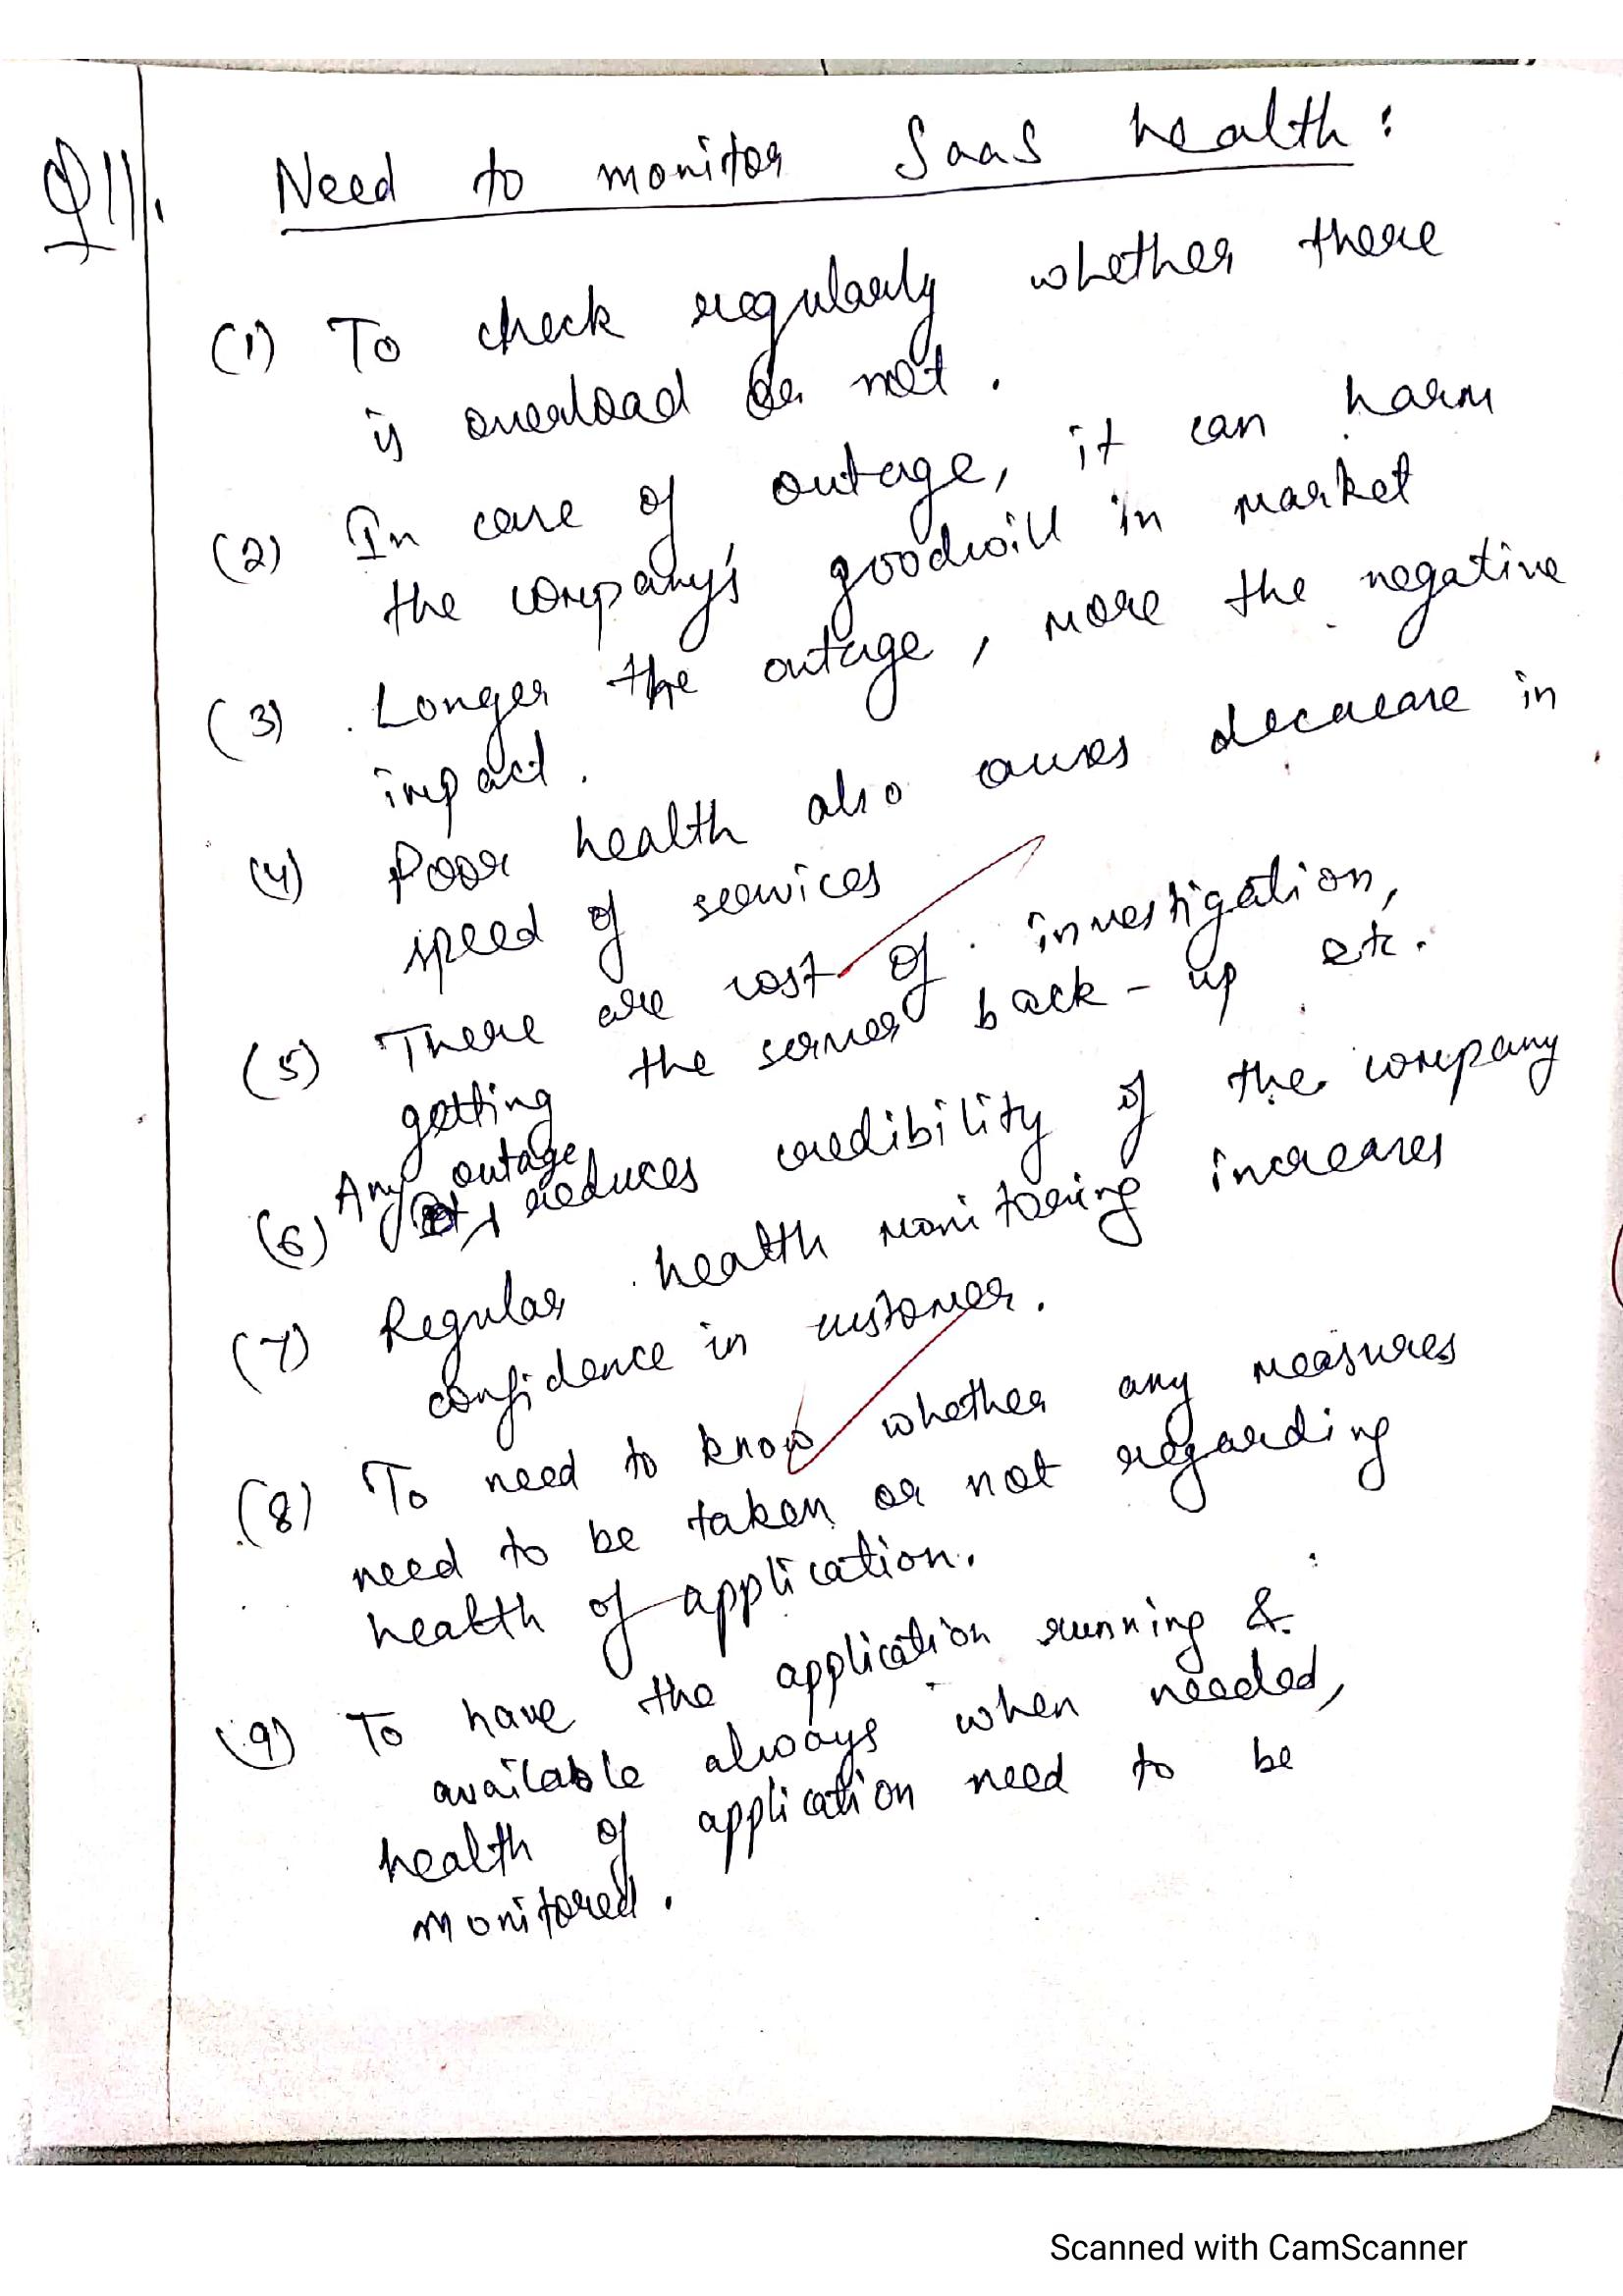 Q11. Need to monitor SaaS health :
(1) To check regularly whether there
is overload or not .
(2) In case of outage, it can harm
the company's goodwill in market
(3) Longer the outage , more the negative
impact .
(4) Poor health also causes decrease in
speed of services
(5) There are cost of investigation,
getting the server back - up etc.
(6) Any outage reduces credibility of the company
(7) Regular health monitoring increases
confidence in customer .
(8) To need to know whether any measures
need to be taken or not regarding
health of application .
(9) To have the application running &
available always when needed,
health of application need to be
monitored .
Scanned with CamScanner